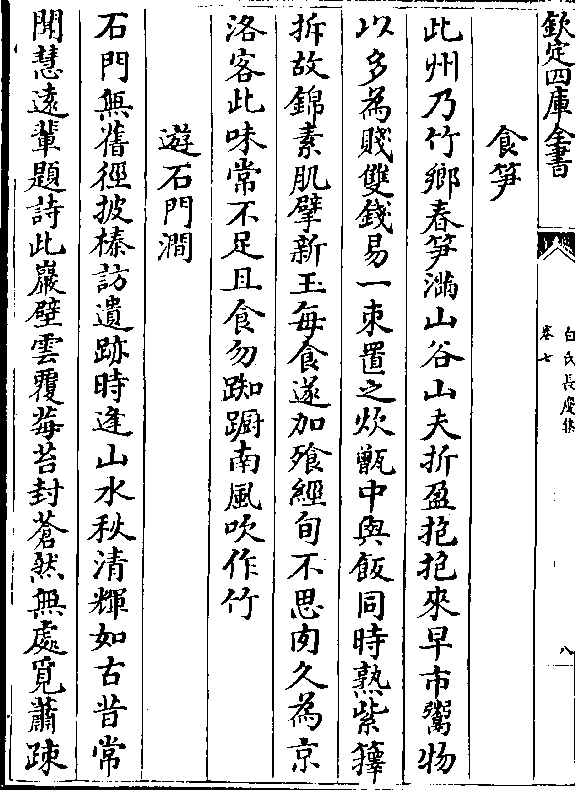 欽定四庫全書
白氏長慶集
卷七
八
食笋
此州乃竹鄉春笋滿山谷山夫折盈抱抱來早市鬻物
以多為賤雙錢易一束置之炊甑中與飯同時熟紫籜
拆故錦素肌擘新玉每食遂加飱經旬不思肉久為京
洛客此味常不足且食勿踟蹰南風吹作竹
遊石門澗
石門無舊徑披榛訪遺跡時逢山水秋清輝如古昔常
聞慧遠輩題詩此巖壁雲覆莓苔封蒼然無處覓蕭疎